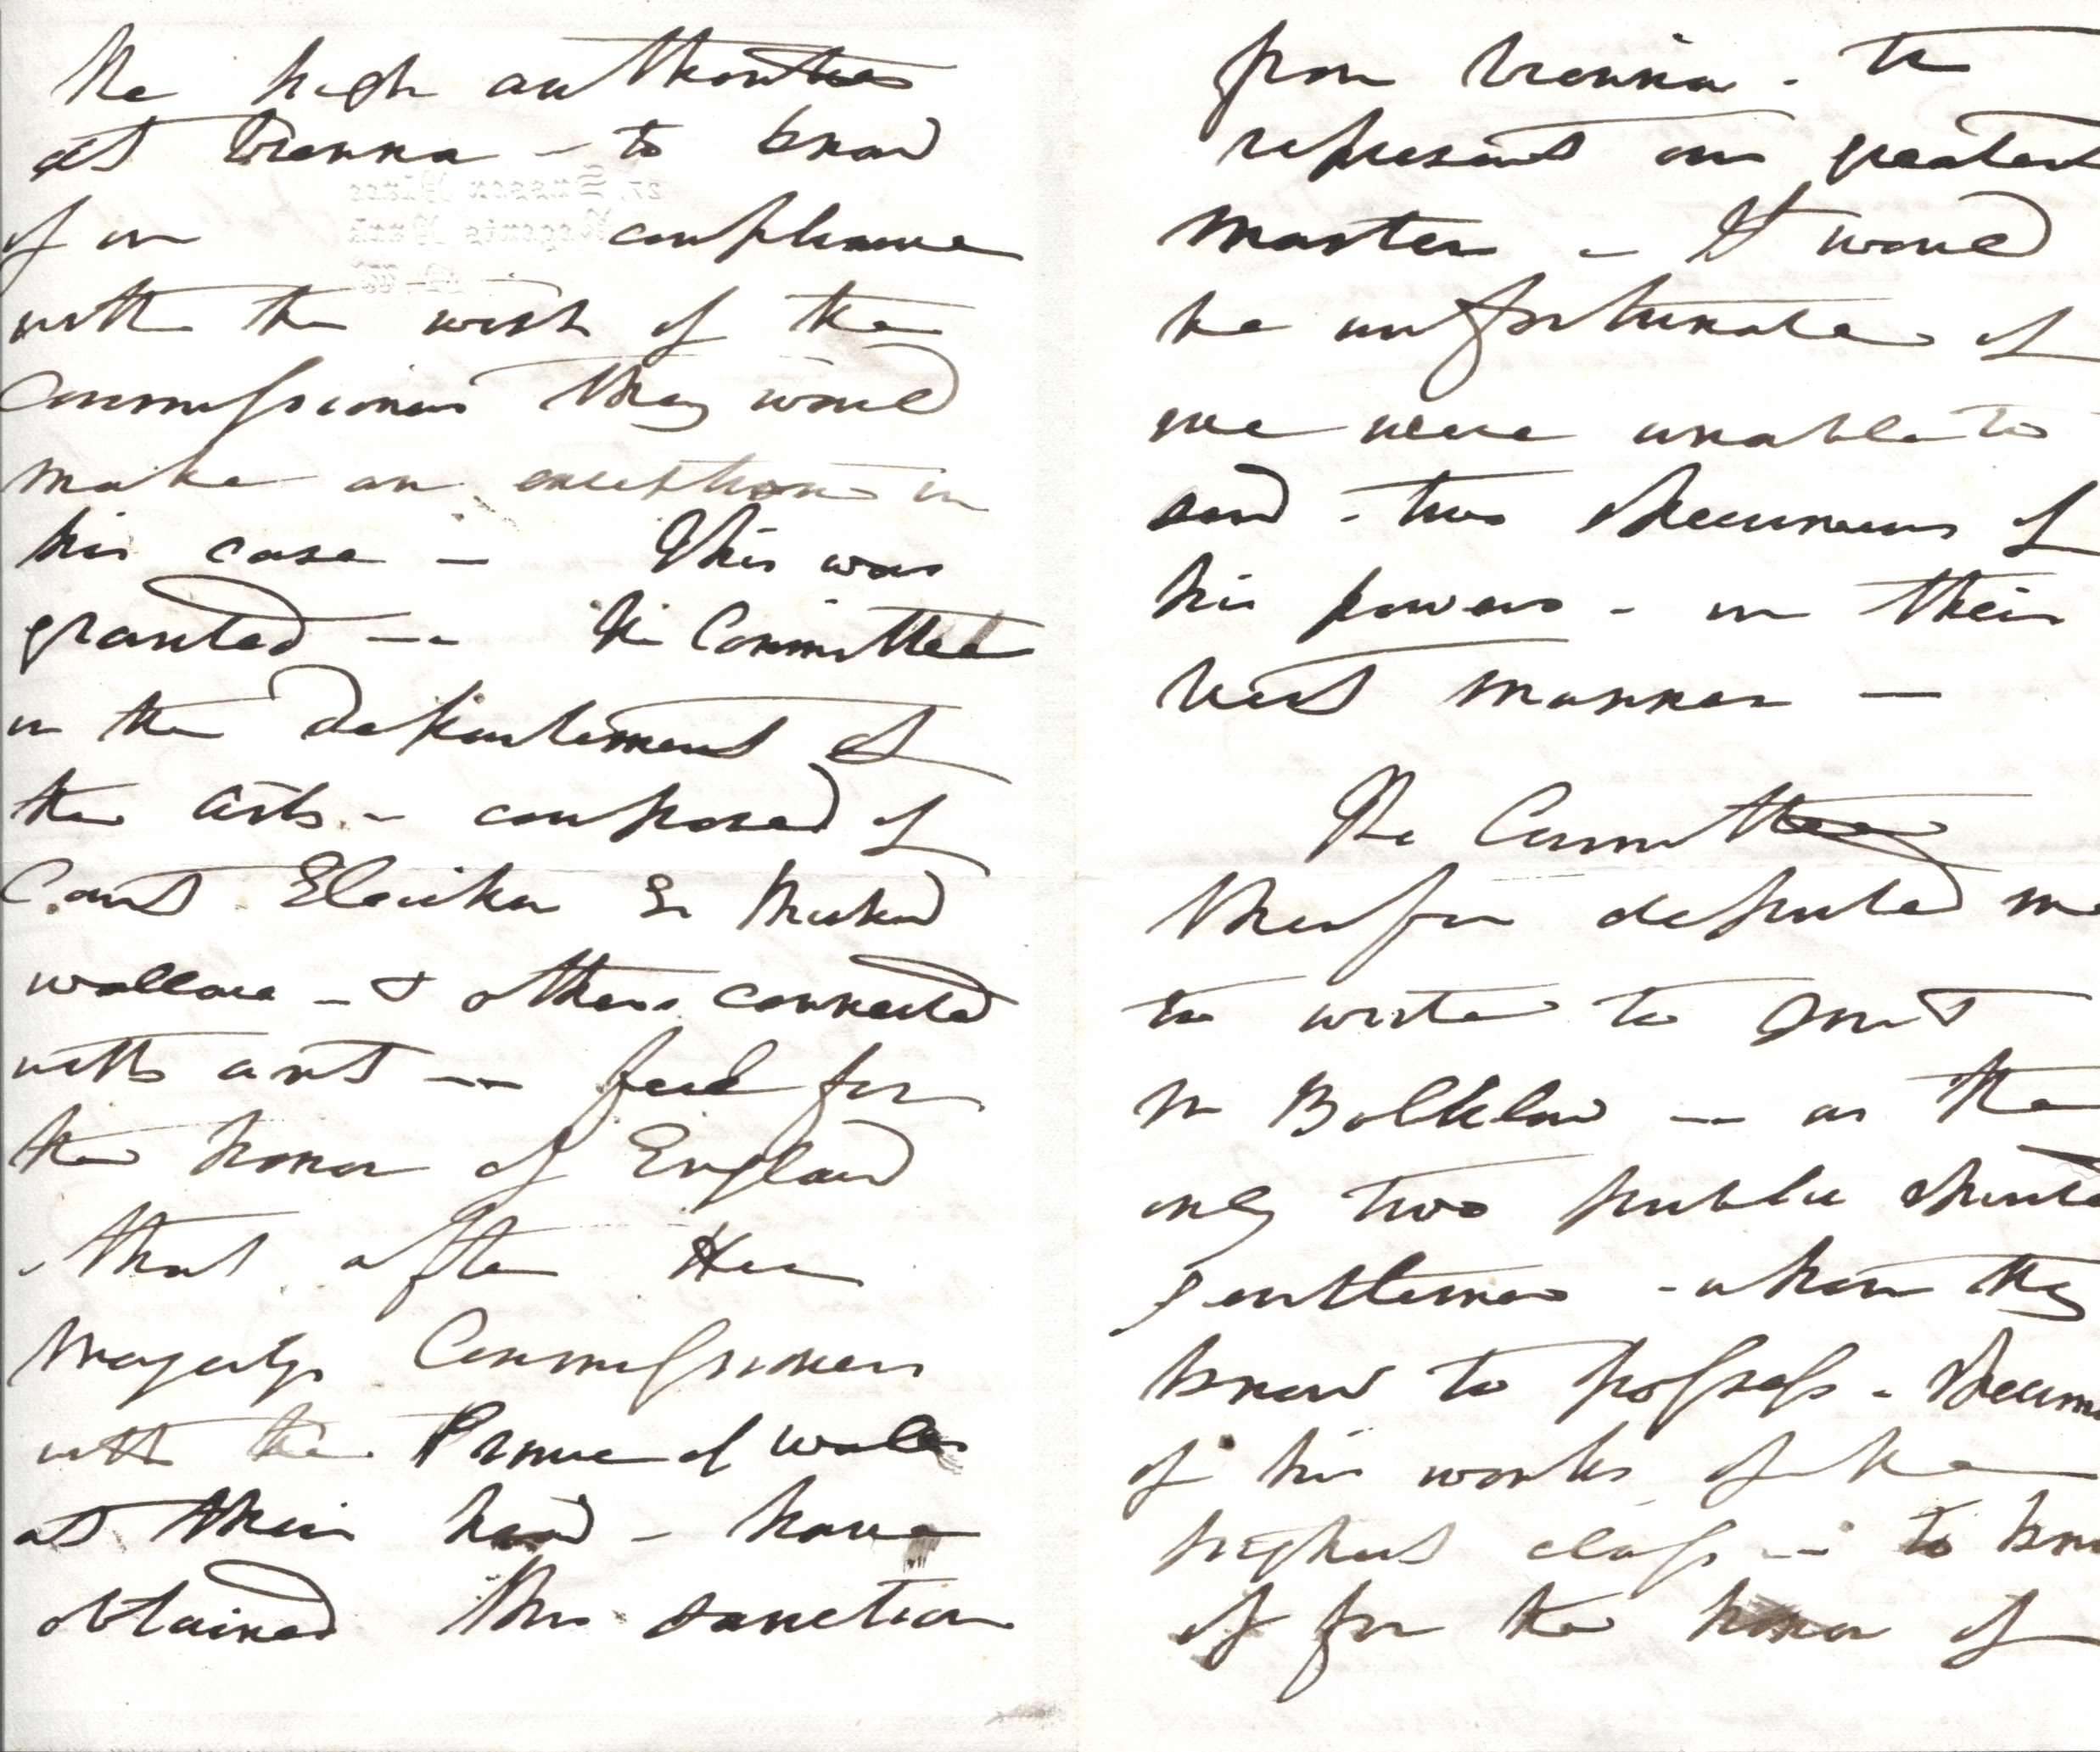 the high authorities
at Vienna - to know
if in compliance
with the wish of the
Commissioners they would
make an exception in
his case - This was
granted -- The Committee
in the department of
the arts - composed of
Count Sr Richard
Wallace - & others connected
with art -- feel for
the honor of England
- that after Her
Majestys Commissioners
with the Prince of Wales
at their head - have
obtained this sanction
from Vienna - to
represent our greatest
Master - It would
be unfortunate if
we were unable to
send - two specimens of
his powers - in their
best manner -
The Committee
therefore deputed me
to write to
Mr Bolcklow - as the
only two public
gentlemen - whom they
know to possess -
of his works of the
highest class -- to
if for the honor of
27, Sussex Place
Regents Park
N.W.